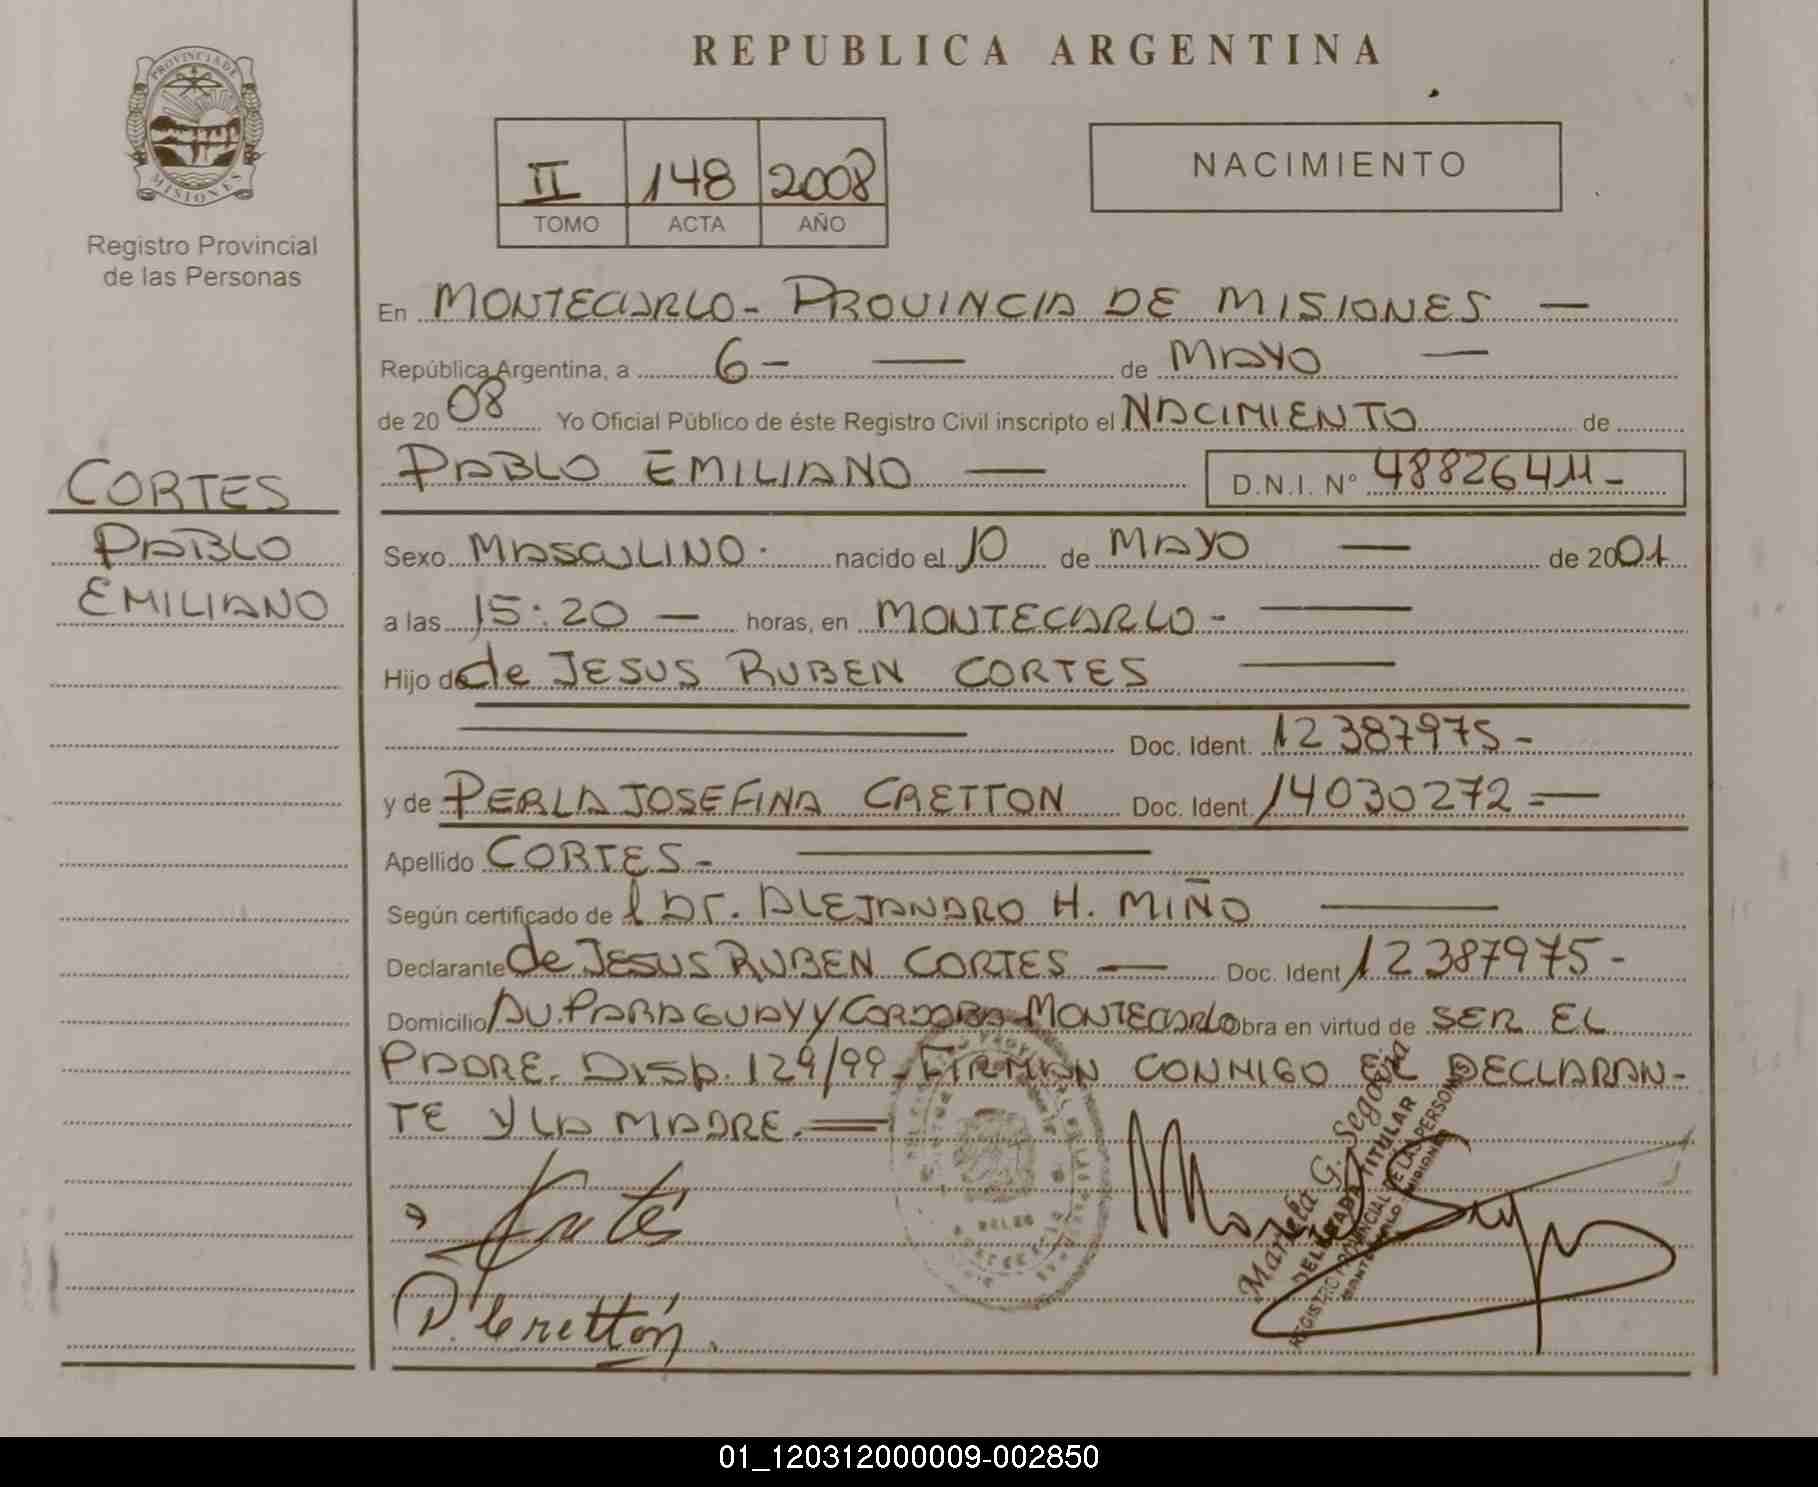 PROVINCIA DE
MISIONES
Registro Provincial
de las Personas
CORTES
PABLO
EMILIANO
REPUBLICA ARGENTINA
II 148 2008
TOMO ACTA AÑO
NACIMIENTO
En MONTECARLO - PROVINCIA DE MISIONES —
República Argentina, a 6 - — de MAYO —
de 2008 Yo Oficial Público de éste Registro Civil inscripto el NACIMIENTO de
PABLO EMILIANO — D.N.I. N° 48826411 -
Sexo MASCULINO. nacido el 10 de MAYO — de 2001
a las 15:20 — horas, en MONTECARLO - —
Hijo de de JESUS RUBEN CORTES —
— Doc. Ident. 12387975 -
y de PERLA JOSEFINA CRETTON Doc. Ident. 14030272 = —
Apellido CORTES - —
Según certificado de l Dr. ALEJANDRO H. MIÑO —
Declarante de JESUS RUBEN CORTES — Doc. Ident 12387975 -
Domicilio AV. PARAGUAY Y CORDOBA - MONTECARLO Obra en virtud de SER EL
PADRE. Disp. 129/99 - FIRMAN CONMIGO EL DECLARAN-
TE Y LA MADRE. =
Cortés
P. Cretton.
Mariela G. Segovia
DELEGADA TITULAR
REGISTRO PROVINCIAL DE LAS PERSONAS
MONTECARLO MISIONES
01_120312000009-002850